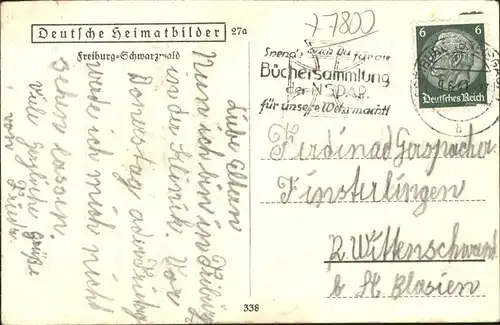 Deutsche Heimatbilder 27a
Freiburg-Schwarzwald
+7800
Spende auch Du für die
Büchersammlung
der NSDAP.
für unsere Wehrmacht!
6 6
Deutsches Reich
b
Liebe Eltern
Nun ich bin in Freiburg
in der Klinik. Vor
Donerstag oder Freitag
werde ich mich nicht
sehen lassen.
Viele herzliche Grüße
von
Frieda
Ferdinad Gerspacher
Finsterlingen
P. Wittenschwand
b. St. Blasien
338